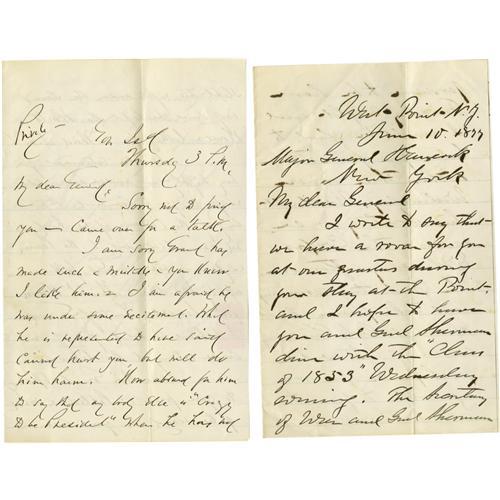 Private
Gov Isd
Thursday 3 P.M.
My dear General,
Sorry not to find
you — Came over for a talk.
I am sorry Grant has
made such a mistake — you know
I like him. — I am afraid he
was under some excitement. What
he is represented to have said
Cannot hurt you but will do
him harm. How absurd for him
to say that any body else is "Crazy
to be President" when he has not
West Point N.Y.
June 10. 1877
Major General Hancock
New York
My dear General
I write to say that
we have a room for you
at our quarters during
your stay at the Point
and I hope to have
you and Genl Sherman
dine with the "Class
of 1853" Wednesday
evening. The Secretary
of War and Genl Sherman